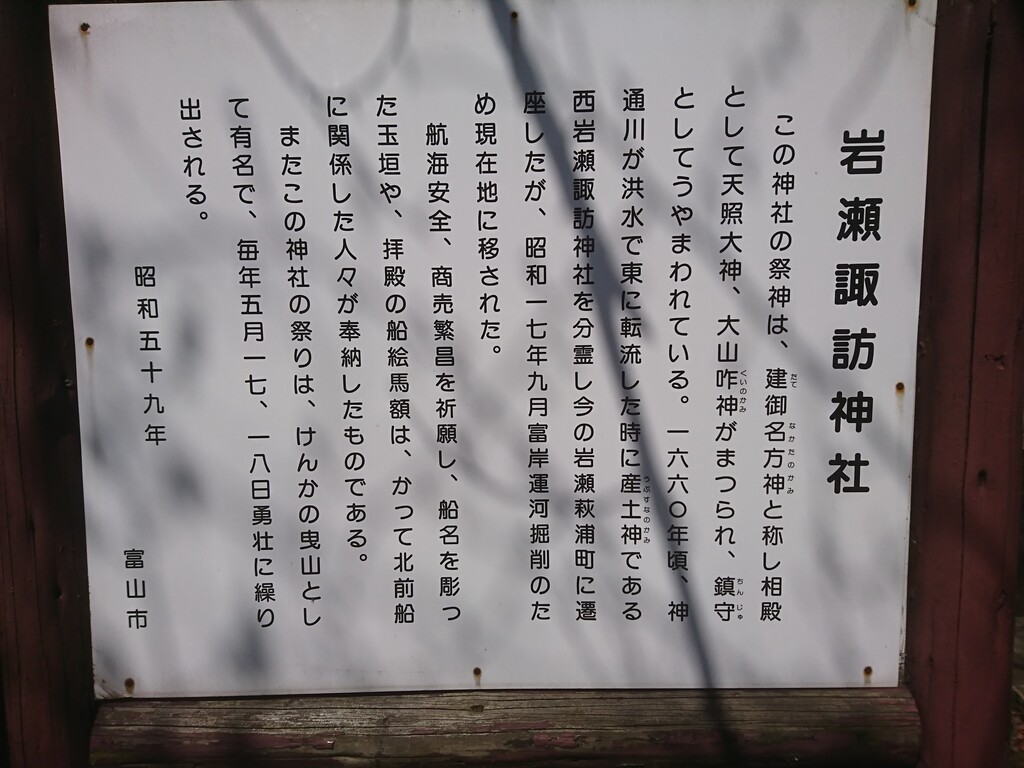 岩瀬諏訪神社
この神社の祭神は、建御名方神と称し相殿
たて なかたのかみ
として天照大神、大山咋神がまつられ、鎮守
くいのかみ ちんじゅ
としてうやまわれている。一六六〇年頃、神
通川が洪水で東に転流した時に産土神である
うぶすなのかみ
西岩瀬諏訪神社を分霊し今の岩瀬萩浦町に遷
座したが、昭和一七年九月富岸運河掘削のた
め現在地に移された。
航海安全、商売繁昌を祈願し、船名を彫っ
た玉垣や、拝殿の船絵馬額は、かって北前船
に関係した人々が奉納したものである。
またこの神社の祭りは、けんかの曳山とし
て有名で、毎年五月一七、一八日勇壮に繰り
出される。
昭和五十九年
富山市